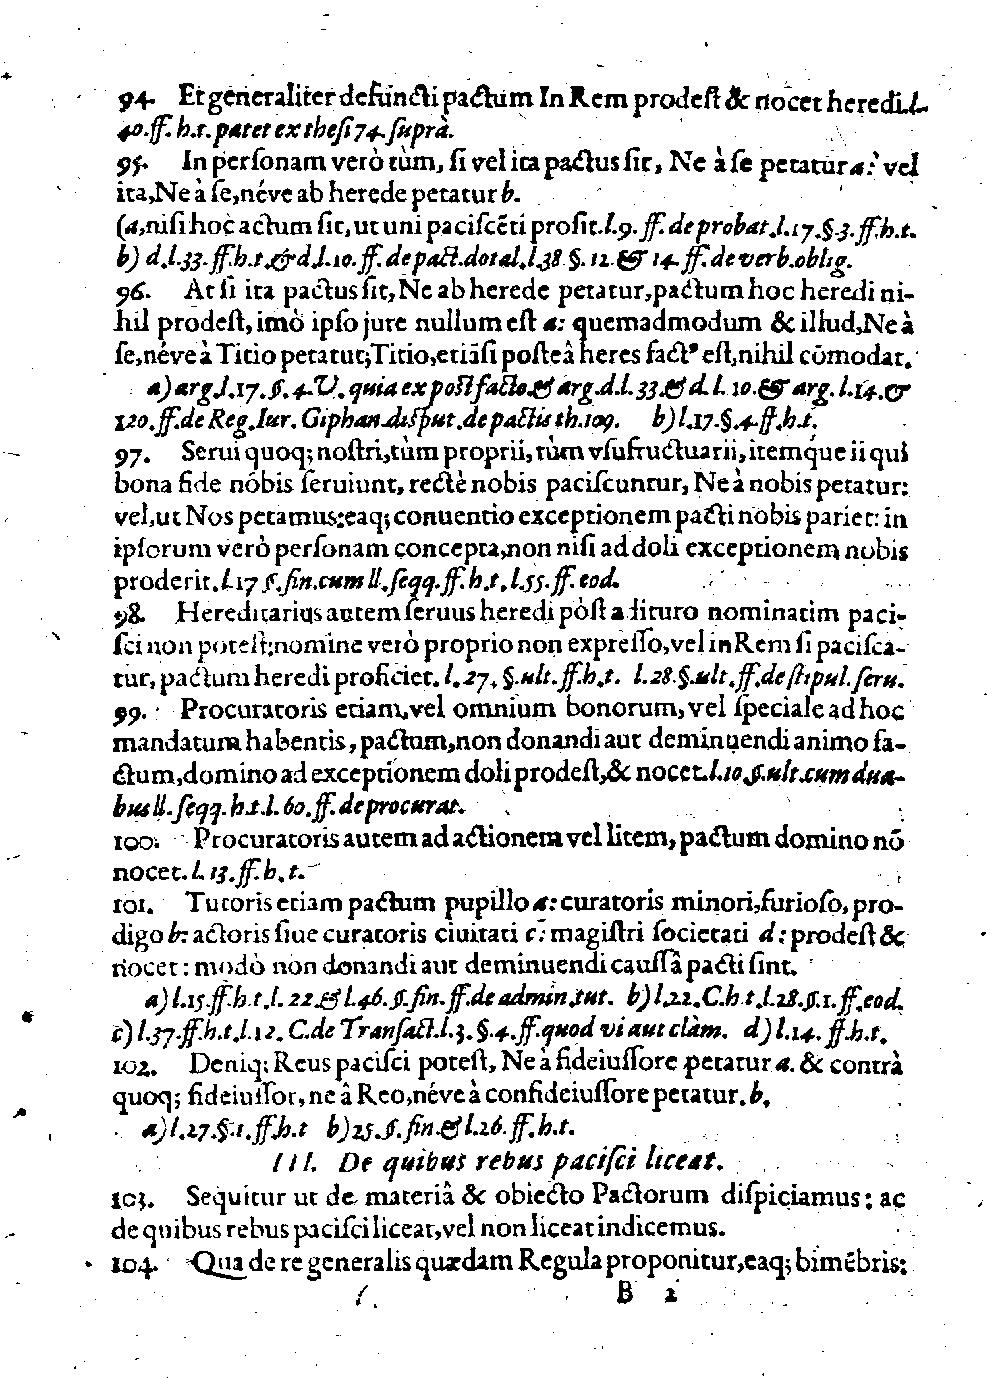 94. Et generaliter defuncti pactum In Rem prodeſt & nocet heredi.l.
40.ff.h.t.patet ex theſi 74.ſuprà.
95. In perſonam verò tùm, ſi vel ita pactus ſit, Ne à ſe petatur a: vel
ita,Ne à ſe,néve ab herede petatur b.
(a,niſi hoc actum ſit,ut uni paciſcēti proſit.l.9.ff.de probat.l.17.§.3.ff.h.t.
b) d.l.33.ff.h.t.& d.l.10.ff.de pact.dotal.l.38.§.12.& 14.ff.de verb.oblig.
96. At ſi ita pactus ſit, Ne ab herede petatur,pactum hoc heredi ni-
hil prodeſt, imò ipſo jure nullum eſt a: quemadmodum & illud,Ne à
ſe,néve à Titio petatur;Titio,etiāſi poſteâ heres factꝰ eſt,nihil cōmodat.
a) arg.l.17.§.4.V. quia ex poſt facto.& arg.d.l.33.& d.l.10.& arg.l.14.&
120.ff.de Reg.Iur. Giphan.diſput.de pactis th.109. b) l.17.§.4.ff.h.t.
97. Serui quoq; noſtri,tùm proprii,tùm vſufructuarii,itemque ii qui
bona fide nóbis ſeruiunt, rectè nobis paciſcuntur, Ne à nobis petatur:
vel,ut Nos petamus:eaq; conuentio exceptionem pacti nobis pariet: in
ipſorum verò perſonam concepta,non niſi ad doli exceptionem nobis
proderit.l.17 §.fin.cum ll.ſeqq.ff.h.t.l.55.ff.eod.
98. Hereditarius autem ſeruus heredi pòſt adituro nominatim paci-
ſci non poteſt:nomine verò proprio non expreſſo,vel in Rem ſi paciſca-
tur, pactum heredi proficiet.l.27.§.ult.ff.h.t. l.28.§.ult.ff.de ſtipul.ſeru.
99. Procuratoris etiam,vel omnium bonorum, vel ſpeciale ad hoc
mandatum habentis, pactum,non donandi aut deminuendi animo fa-
ctum,domino ad exceptionem doli prodeſt,& nocet.l.10.§.ult.cum dua-
bus ll.ſeqq.h.t.l.60.ff.de procurat.
100. Procuratoris autem ad actionem vel litem, pactum domino nō
nocet.l.13.ff.h.t.
101. Tutoris etiam pactum pupillo a: curatoris minori,furioſo,pro-
digo b: actoris ſiue curatoris ciuitati c: magiſtri ſocietati d: prodeſt &
nocet: modò non donandi aut deminuendi cauſſâ pacti ſint.
a) l.15.ff.h.t.l.22.& l.46.§.fin.ff.de admin.tut. b) l.22.C.h.t.l.28.§.1.ff.eod.
c) l.37.ff.h.t.l.12.C.de Tranſact.l.3.§.4.ff.quod vi aut clàm. d) l.14.ff.h.t.
102. Deniq; Reus paciſci poteſt, Ne à fideiuſſore petatur a. & contrà
quoq; fideiuſſor, ne â Reo,néve à confideiuſſore petatur.b.
a) l.27.§.1.ff.h.t b) 25.§.fin.& l.26.ff.h.t.
III. De quibus rebus paciſci liceat.
103. Sequitur ut de materiâ & obiecto Pactorum diſpiciamus: ac
de quibus rebus paciſci liceat,vel non liceat indicemus.
104. Qua de re generalis quædam Regula proponitur,eaq; bimēbris:
B 2